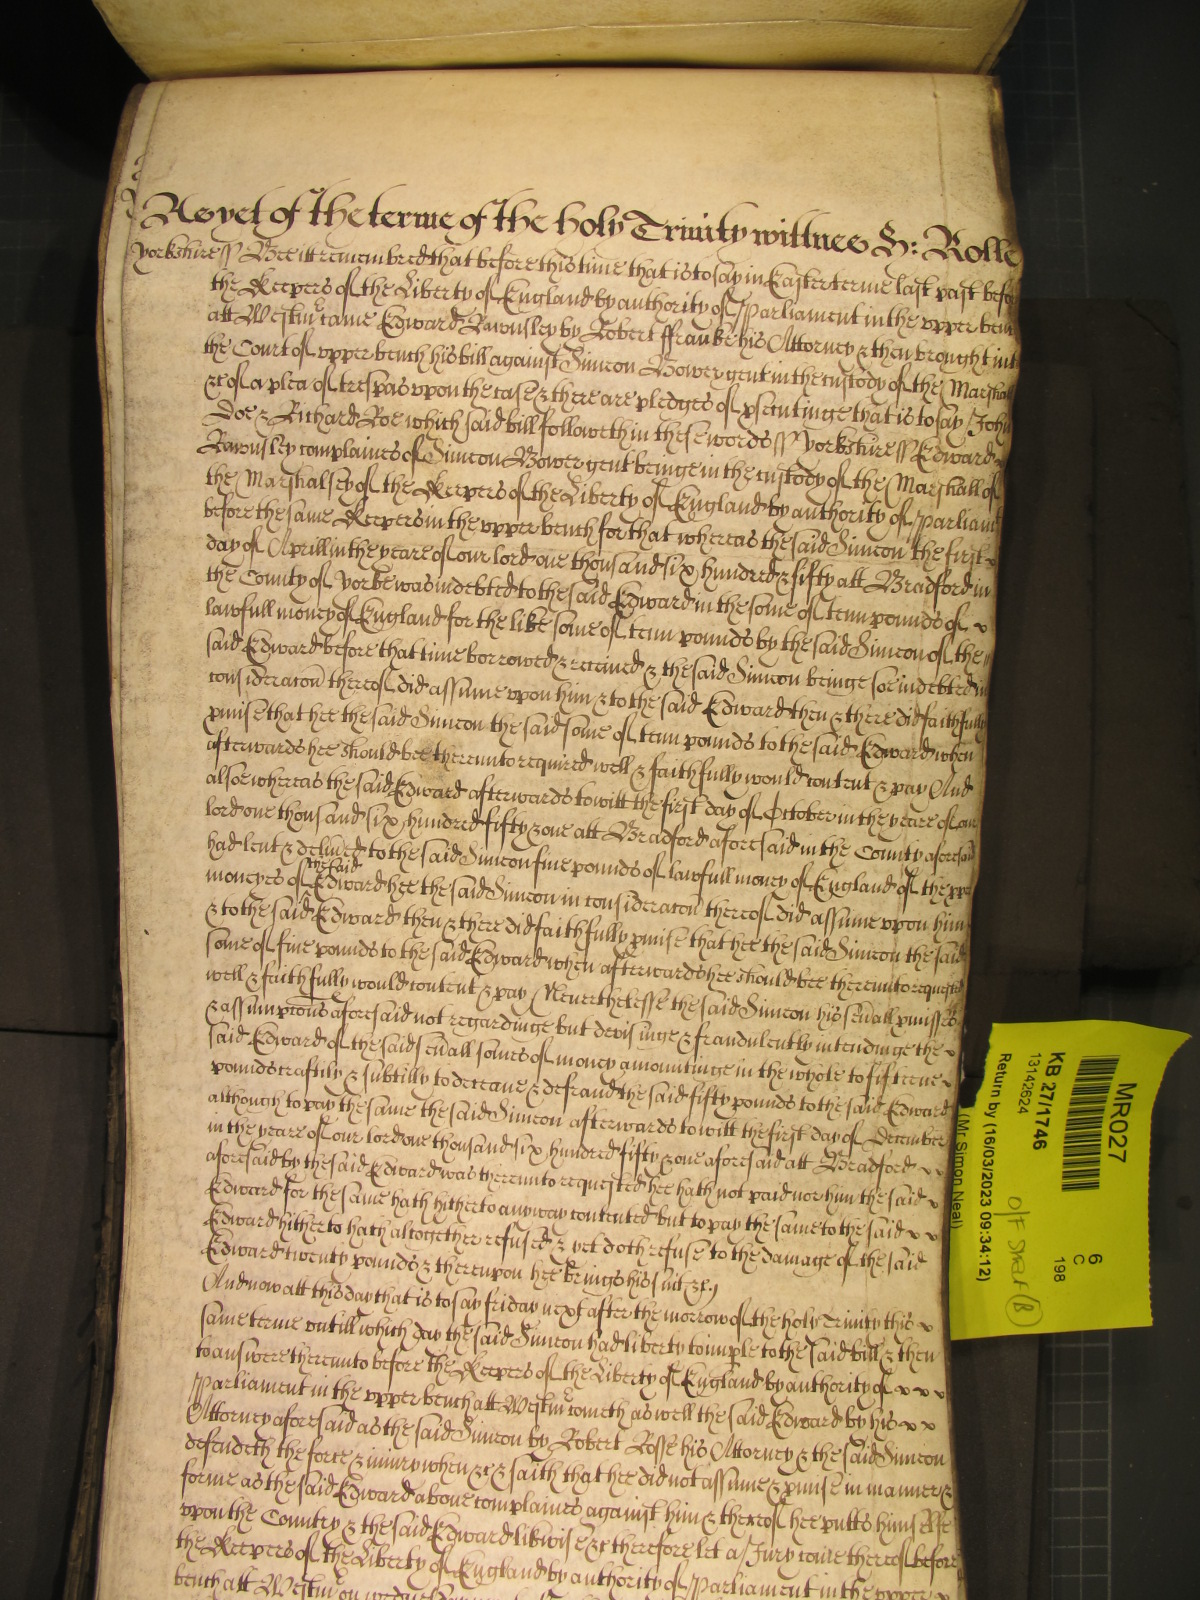 As yet of the terme of the holy Trinity wittnes H: Rolle
Yorkshire ss Bee it remembred that before this time that is to say in Easter terme last past before
the Keepers of the Liberty of England by authority of Parliament in the upper bench
att Westmr came Edward Rawnsley by Robert ffranke his Attorney & then brought into
the Court of upper bench his bill against Simeon Bower gent in the custody of the Marshall
&c of a plea of trespas upon the case & there are pledges of psecutinge that is to say John
Doe & Richard Roe which said bill followeth in these words ss Yorkshire ss Edward
Rawnsley complaines of Simeon Bower gent beinge in the custody of the Marshall of
the Marshalsey of the Keepers of the Liberty of England by authority of Parliamt
before the same Keepers in the upper bench for that whereas the said Simeon the first
day of Aprill in the yeare of our lord one thousand six hundred & fifty att Bradford in
the County of Yorke was indebted to the said Edward in the some of tenn pounds of
lawfull money of England for the like some of tenn pounds by the said Simeon of the
said Edward before that time borrowed & received & the said Simeon beinge soe indebted in
consideracon thereof did assume upon him & to the said Edward then & there did faithfully
pmise that hee the said Simeon the said some of tenn pounds to the said Edward when
afterwards hee should bee thereunto required well & faithfully would content & pay And
alsoe whereas the said Edward afterwards to witt the first day of October in the yeare of our
lord one thousand six hundred fifty & one att Bradford aforesaid in the County aforesaid
had lent & delived to the said Simeon five pounds of lawfull money of England of the pper
moneyes of the said Edward hee the said Simeon in consideracon thereof did assume upon him
& to the said Edward then & there did faithfully pmise that hee the said Simeon the said
some of five pounds to the said Edward when afterwards hee should bee thereunto requested
well & faithfully would content & pay Neverthelesse the said Simeon his sevall pmisses
& assumpcons aforesaid not regardinge but devisinge & fraudulently intendinge the
said Edward of the said sevall somes of money amountinge in the whole to fifteene
pounds craftily & subtilly to deceave & defraud the said fifty pounds to the said Edward
although to pay the same the said Simeon afterwards to witt the first day of December
in the yeare of our lord one thousand six hundred fifty & one aforesaid att Bradford
aforesaid by the said Edward was thereunto requested hee hath not paid nor him the said
Edward for the same hath hitherto any way contented but to pay the same to the said
Edward hitherto hath altogether refused & yet doth refuse to the damage of the said
Edward twenty pounds & thereupon hee brings his suit &c
And now att this day that is to say friday next after the morrow of the holy Trinity this
same terme untill which day the said Simeon had liberty to imple to the said bill & then
to answere thereunto before the Keepers of the Liberty of England by authority of
Parliament in the upper bench att Westmr cometh as well the said Edward by his
Attorney aforesaid as the said Simeon by Robert Rosse his Attorney & the said Simeon
defendeth the force & iniury when &c & saith that hee did not assume & pmise in manner &
forme as the said Edward above complaines against him & thereof hee putts himselfe
upon the Country & the said Edward likwise &c therefore let a Jury come thereof before
the Keepers of the Liberty of England by authority of Parliament in the upper
bench att Westmr on
MR027
KB 27/1746
13142624
Return by (16/03/2023 09:34:12)
(Mr Simon Neal)
6
C
198
O/F Shelf B